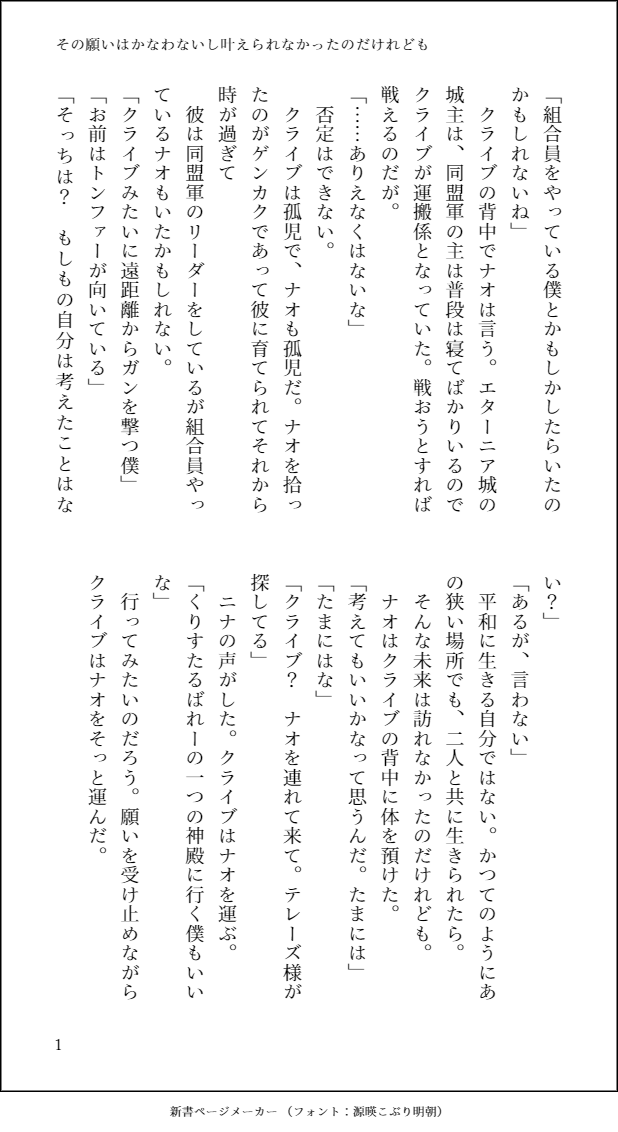 その願いはかなわないし叶えられなかったのだけれども
「組合員をやっている僕とかもしかしたらいたの
かもしれないね」
　クライブの背中でナオは言う。エターニア城の
城主は、同盟軍の主は普段は寝てばかりいるので
クライブが運搬係となっていた。戦おうとすれば
戦えるのだが。
「……ありえなくはないな」
　否定はできない。
　クライブは孤児で、ナオも孤児だ。ナオを拾っ
たのがゲンカクであって彼に育てられてそれから
時が過ぎて
　彼は同盟軍のリーダーをしているが組合員やっ
ているナオもいたかもしれない。
「クライブみたいに遠距離からガンを撃つ僕」
「お前はトンファーが向いている」
「そっちは？　もしもの自分は考えたことはな
い？」
「あるが、言わない」
　平和に生きる自分ではない。かつてのようにあ
の狭い場所でも、二人と共に生きられたら。
　そんな未来は訪れなかったのだけれども。
　ナオはクライブの背中に体を預けた。
「考えてもいいかなって思うんだ。たまには」
「たまにはな」
「クライブ？　ナオを連れて来て。テレーズ様が
探してる」
　ニナの声がした。クライブはナオを運ぶ。
「くりすたるばれーの一つの神殿に行く僕もいい
な」
　行ってみたいのだろう。願いを受け止めながら
クライブはナオをそっと運んだ。
1
新書ページメーカー（フォント：源暎こぶり明朝）